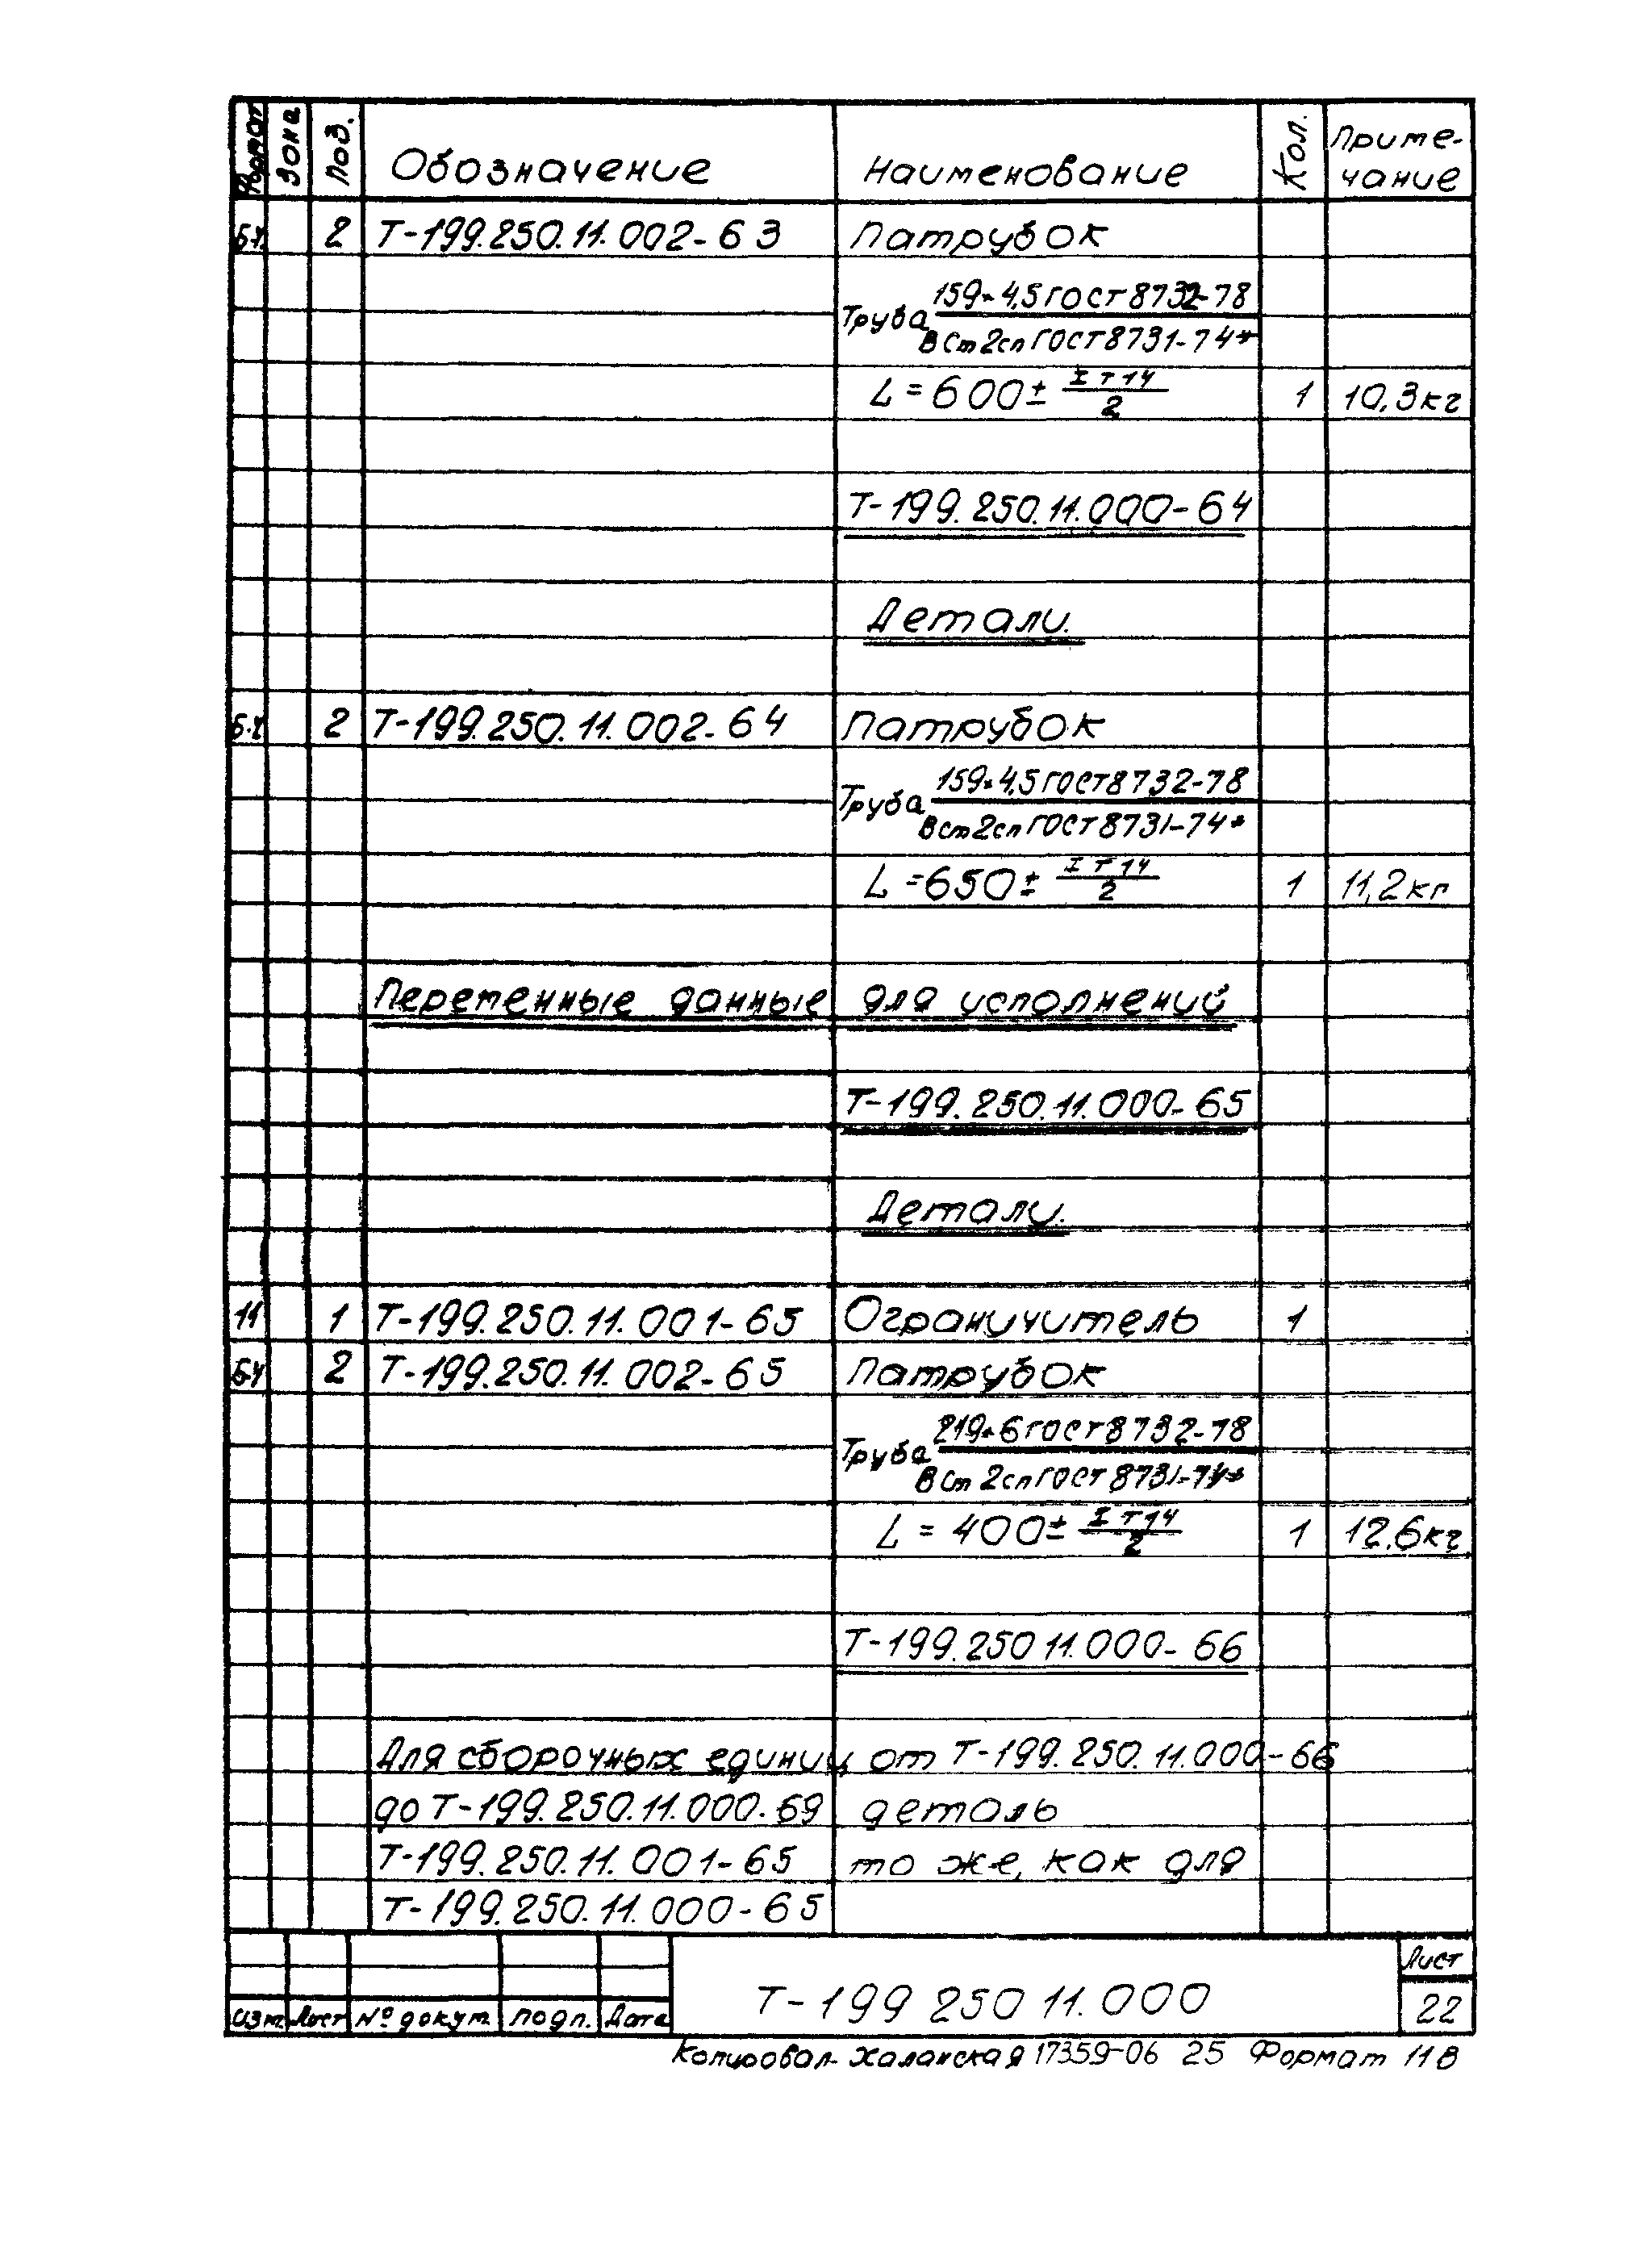 Формат Зона Поз. Обозначение Наименование Кол. Приме-
чание
БЧ 2 Т-199.250.11.002-63 Патрубок
Труба 159×4,5 ГОСТ 8732-78
ВСт2сп ГОСТ 8731-74*
L=600± IT14
2 1 10,3кг
Т-199.250.11.000-64
Детали.
БЧ 2 Т-199.250.11.002-64 Патрубок
Труба 159×4,5 ГОСТ 8732-78
ВСт2сп ГОСТ 8731-74*
L=650± IT14
2 1 11,2кг
Переменные данные для исполнений
Т-199.250.11.000-65
Детали.
11 1 Т-199.250.11.001-65 Ограничитель 1
БЧ 2 Т-199.250.11.002-65 Патрубок
Труба 219×6 ГОСТ 8732-78
ВСт2сп ГОСТ 8731-74*
L=400± IT14
2 1 12,6кг
Т-199.250 11.000-66
Для сборочных единиц от Т-199.250.11.000-66
до Т-199.250.11.000-69 деталь
Т-199.250.11.001-65 то же, как для
Т-199.250.11.000-65
Изм. Лист № докум. подп. Дата
Т-199 250 11.000
Лист
22
Копировал- Халанская 17359-06 25 Формат 11В